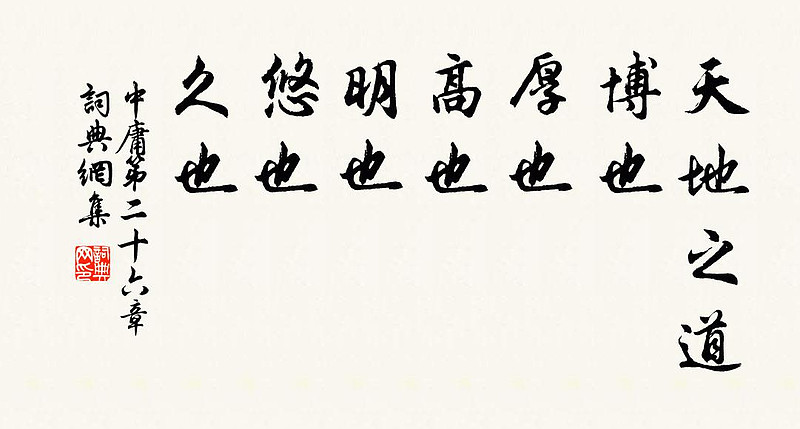 天地之道
博也
厚也
高也
明也
悠也
久也
中庸第二十六章
詞典網集
詞典網印